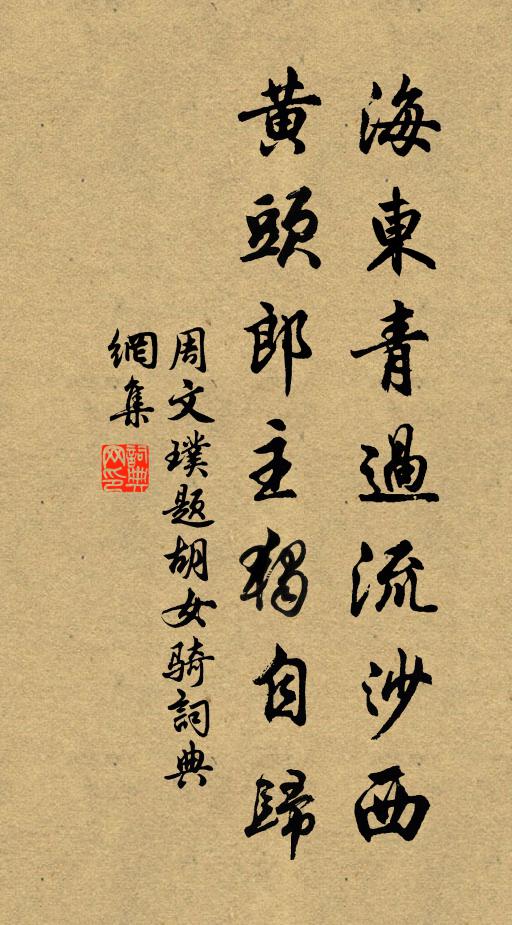 海東青過流沙西
黃頭郎主獨自歸
周文璞题胡女骑詞典
網集
詞典
网印